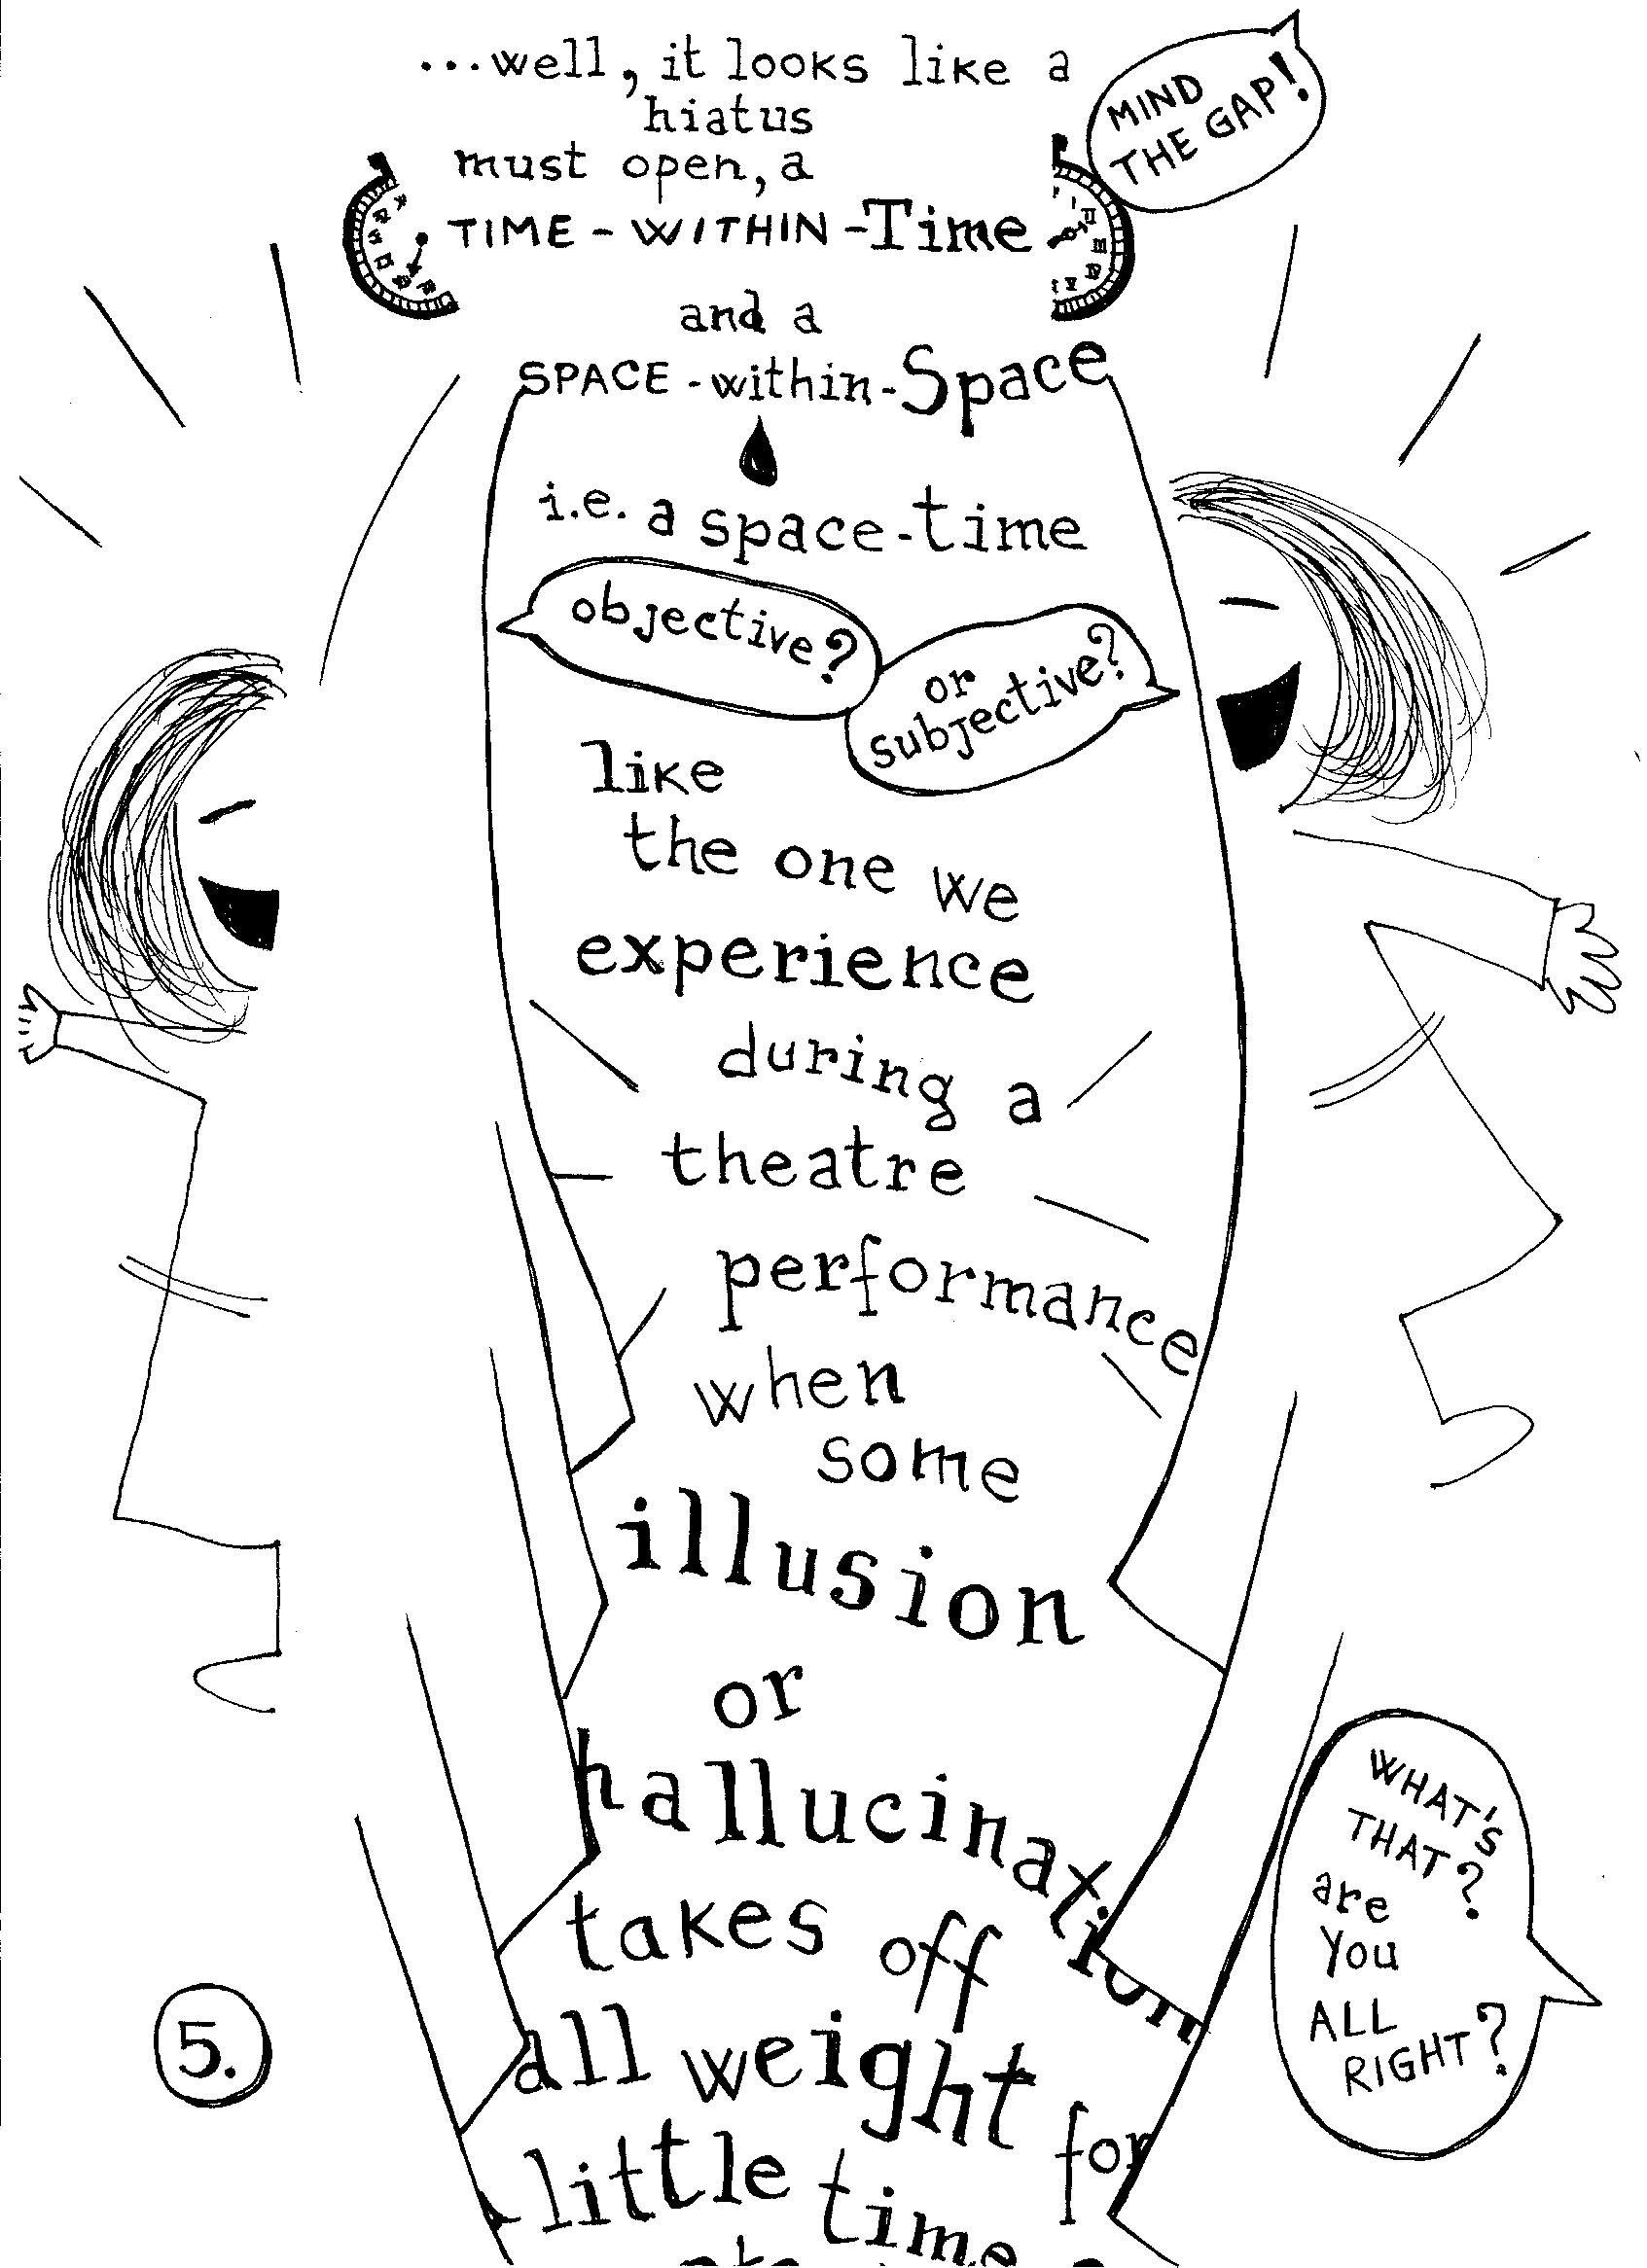 ...well, it looks like a
hiatus
must open, a
TIME-WITHIN-Time
MIND
THE GAP!
and a
SPACE-within-Space
i.e. a space-time
objective?
or
subjective?
like
the one we
experience
during a
theatre
performance
when
some
illusion
or
hallucination
takes off
all weight for
little time
WHAT'S
THAT?
are
you
ALL
RIGHT?
5.